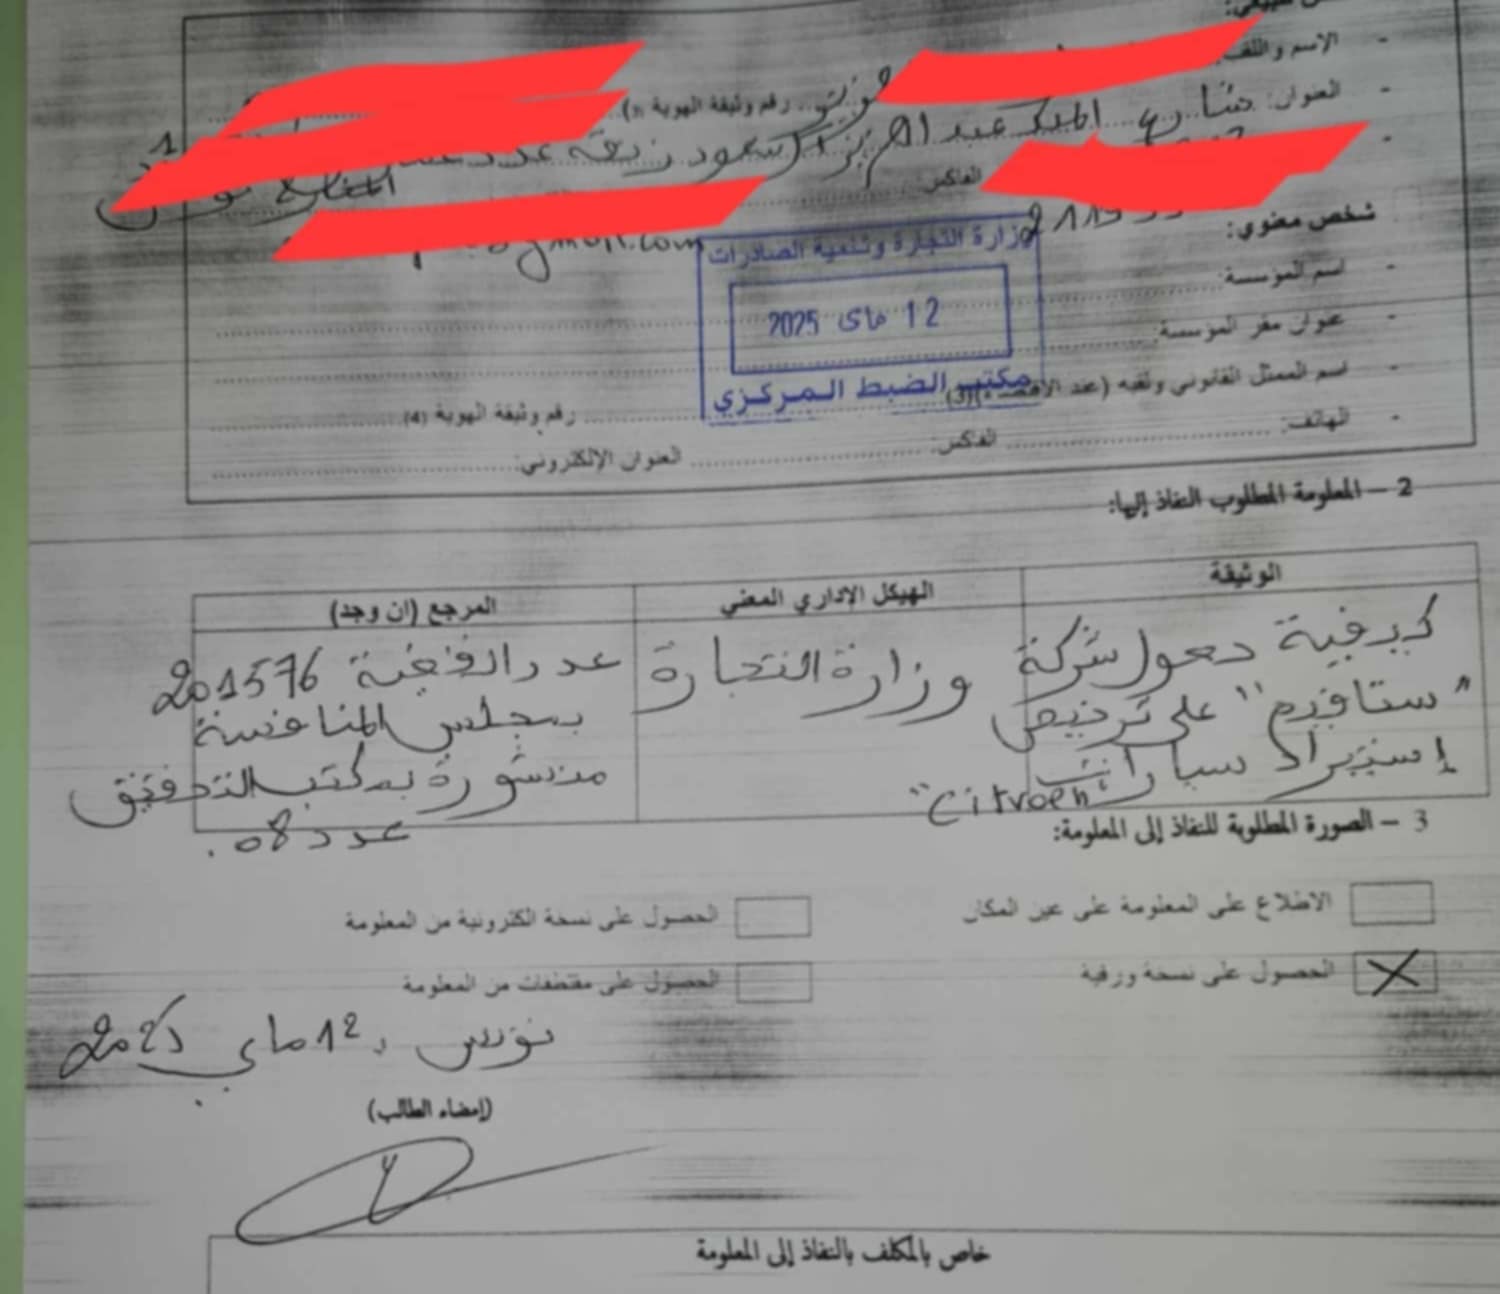 الاسم واللقب:
رقم وثيقة الهوية
العنوان: شارع الملك عبد العزيز آل سعود زنقة عدد
المنار تونس
الفاكس:
شخص معنوي:
وزارة التجارة وتنمية الصادرات
12 ماي 2025
مكتب الضبط المركزي
- اسم المؤسسة:
- عنوان مقر المؤسسة:
- اسم الممثل القانوني ولقبه (عند الاقتضاء)(3) رقم وثيقة الهوية (4)
- الهاتف: الفاكس: العنوان الإلكتروني:
2 – المعلومة المطلوب النفاذ إليها:
الوثيقة
كيفية حصول شركة
"ستافيم" على ترخيص
إستيراد سيارات
"Citroen"
الهيكل الإداري المعني
وزارة التجارة
المرجع (ان وجد)
عدد القضية 201576
بمجلس المنافسة
منشورة بمكتب التحقيق
عدد 08.
3 – الصورة المطلوبة للنفاذ إلى المعلومة:
الاطلاع على المعلومة على عين المكان
الحصول على نسخة الكترونية من المعلومة
X الحصول على نسخة ورقية
الحصول على مقتطفات من المعلومة
تونس، 12 ماي 2025
(إمضاء الطالب)
خاص بالمكلف بالنفاذ إلى المعلومة